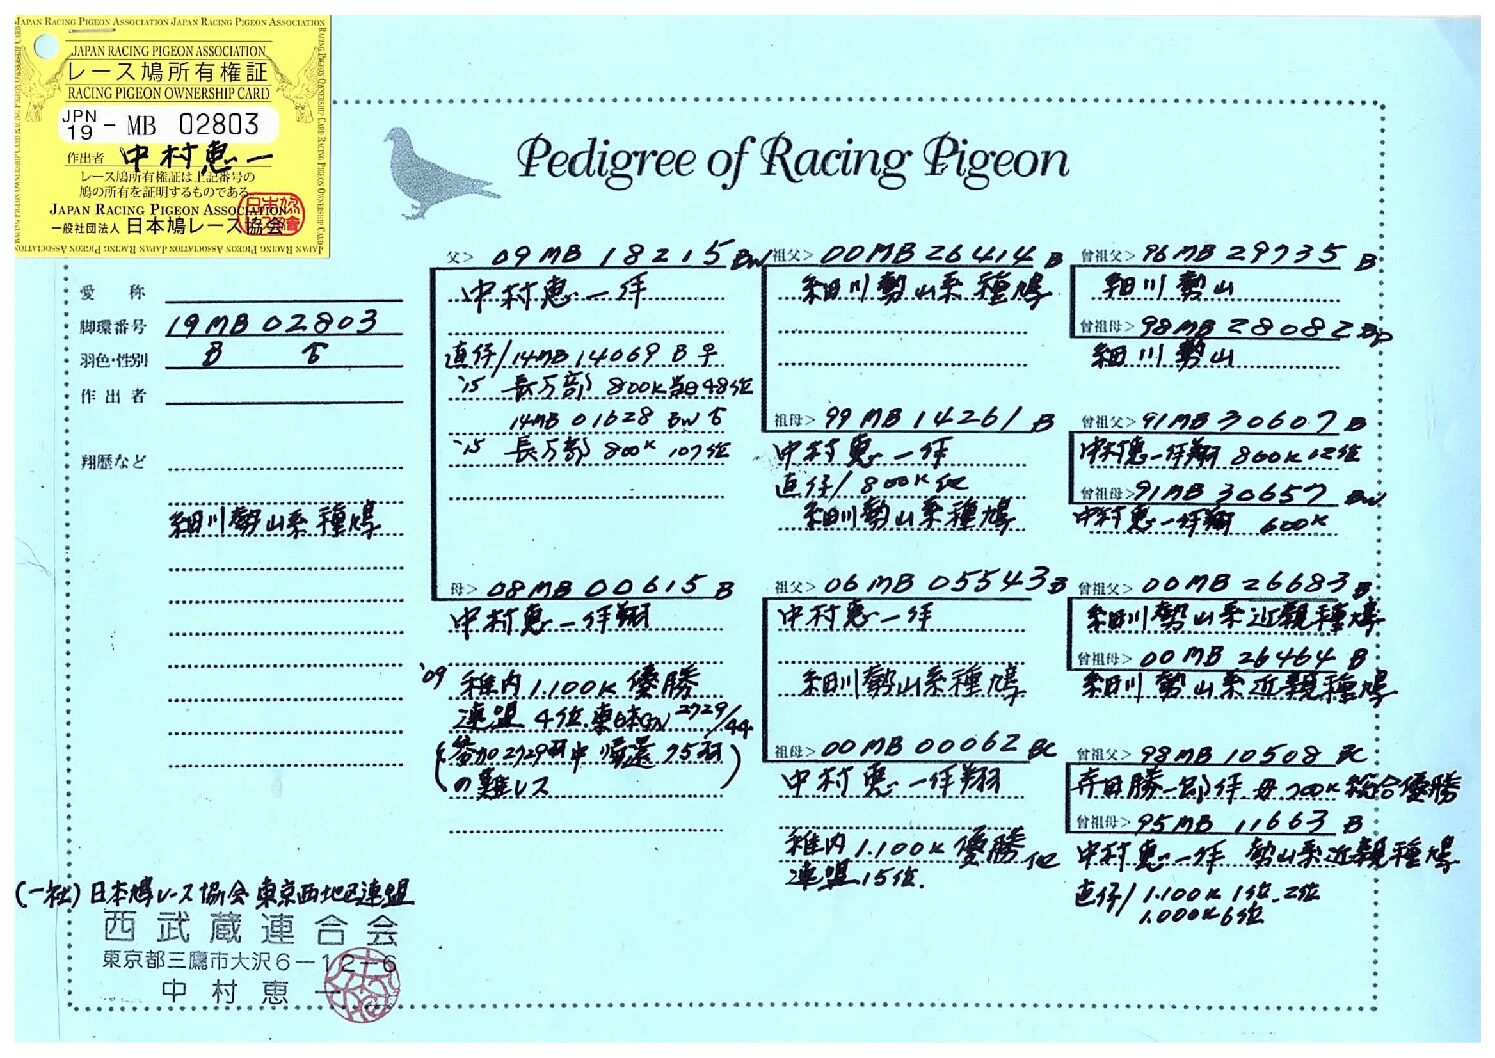 JAPAN RACING PIGEON ASSOCIATION JAPAN RACING PIGEON ASSOCIATION
JAPAN RACING PIGEON ASSOCIATION
レース鳩所有権証
RACING PIGEON OWNERSHIP CARD
JPN
19 - MB 02803
作出者 中村惠一
レース鳩所有権証は上記番号の
鳩の所有を証明するものである
JAPAN RACING PIGEON ASSOCIATION
一般社団法人 日本鳩レース協会
Pedigree of Racing Pigeon
愛 称
脚環番号 19MB02803
羽色・性別 B ♂
作出者
翔歴など
細川勢山系種鳩
父> 09MB 18215 BW
中村惠一作
直仔/14MB 14069 B ♀
'15 長万部 800K 当日48位
14MB 01628 BW ♂
'15 長万部 800K 107位
母> 08MB 00615 B
中村惠一作翔
'09 稚内1.100K 優勝
連盟 4位.東日本GN 2729/44
(参加2729羽中 帰還 75羽
の難レース)
祖父> 00MB 26414 B
細川勢山系種鳩
祖母> 99MB 14261 B
中村惠一作
直仔/800K 他
細川勢山系種鳩
祖父> 06MB 05543 B
中村惠一作
細川勢山系種鳩
祖母> 00MB 00062 BC
中村惠一作翔
稚内1.100K優勝 他
連盟15位.
曾祖父> 96MB 29735 B
細川勢山
曾祖母> 98MB 28082 BP
細川勢山
曾祖父> 91MB 30607 B
中村惠一作翔 800K 12位
曾祖母> 91MB 30657 BW
中村惠一作翔 600K
曾祖父> 00MB 26683 B
細川勢山系近親種鳩
曾祖母> 00MB 26464 B
細川勢山系近親種鳩
曾祖父> 98MB 10508 BC
寺田勝一郎作 母700K総合優勝
曾祖母> 95MB 11663 B
中村惠一作 勢山系近親種鳩
直仔/1.100K 1位.2位
1.000K6位
(一社)日本鳩レース協会 東京西地区連盟
西武蔵連合会
東京都三鷹市大沢6-12-6
中村惠一